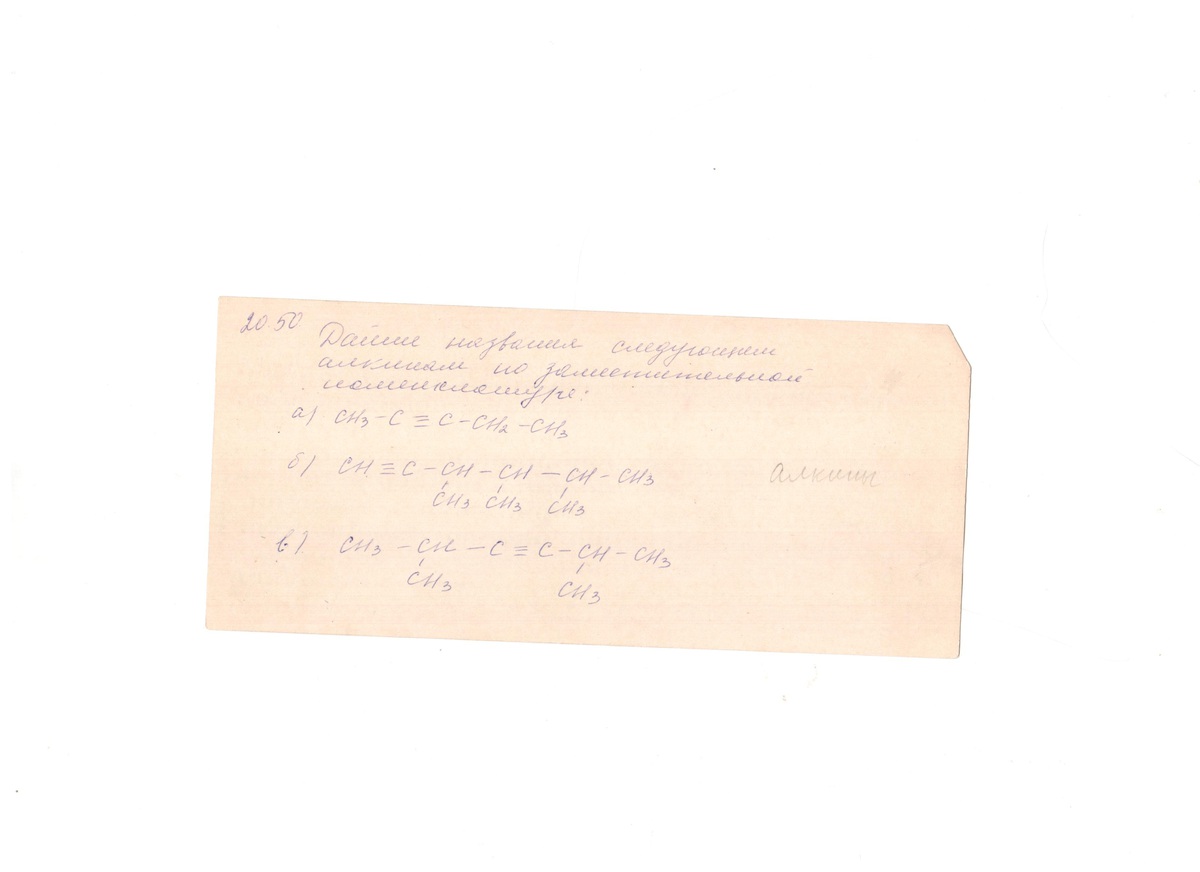 20.50
Дайте названия следующем
алкинам по заместительной
номенклатуре:
а) CH₃-C≡C-CH₂-CH₃
б) CH≡C-CH-CH-CH-CH₃
CH₃ CH₃ CH₃
алкины
в) CH₃-CH-C≡C-CH-CH₃
CH₃ CH₃